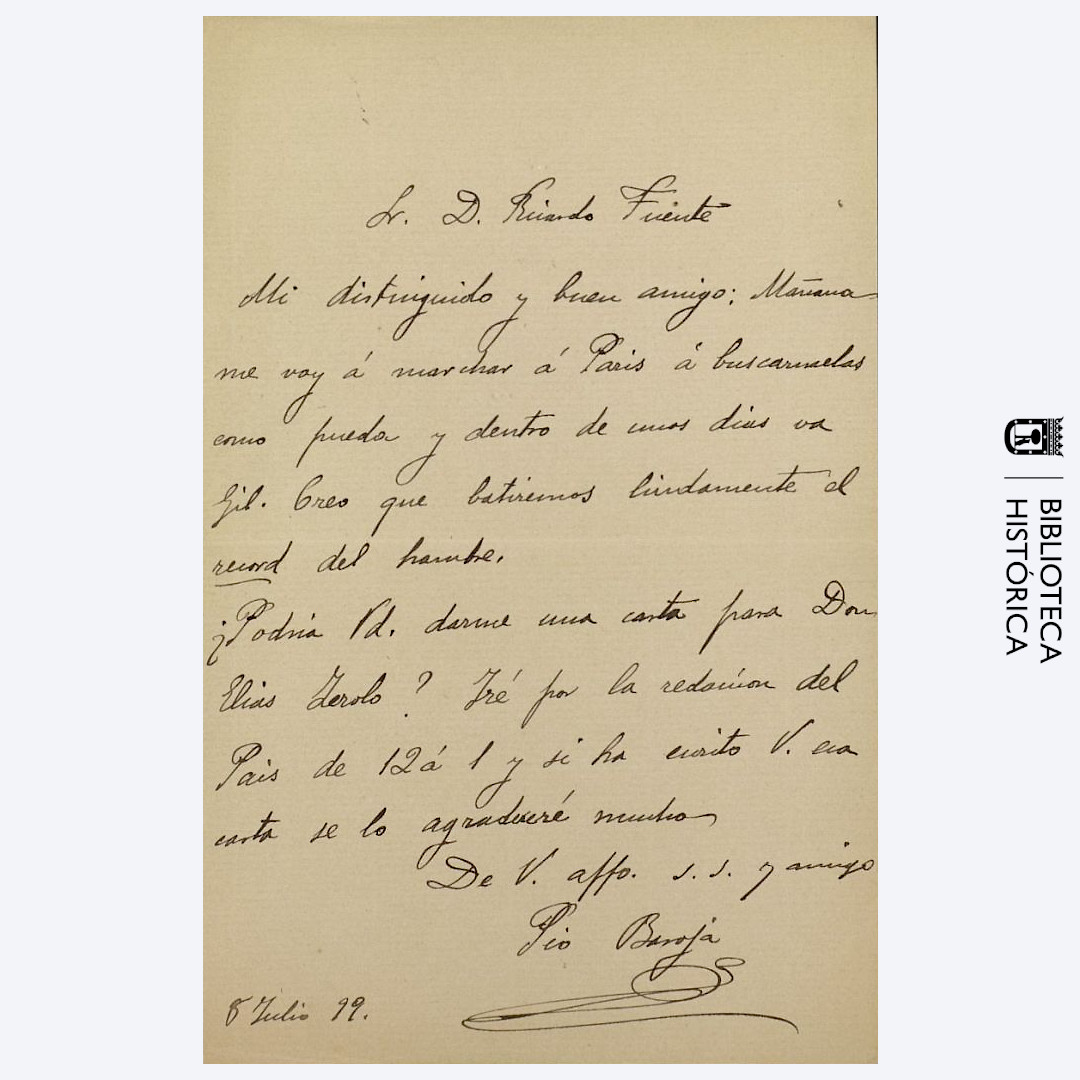 Sr. D. Ricardo Fuente
Mi distinguido y buen amigo; Mañana
me voy á marchar á Paris á buscarmelas
como pueda y dentro de unos dias va
Gil. Creo que batiremos lindamente el
record del hambre.
¿Podria Vd. darme una carta para Don
Elias Zerolo? Iré por la redacción del
Pais de 12 á 1 y si ha escrito V. esa
carta se lo agradeceré mucho
De V. affo. s. s. y amigo
Pío Baroja
8 Julio 99.
BIBLIOTECA
HISTÓRICA